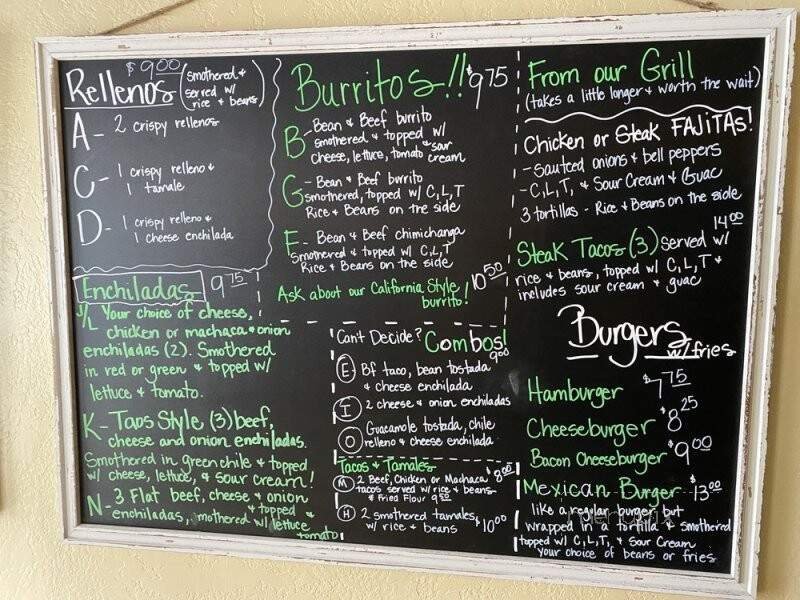 Rellenos $9.00 (smothered & served w/ rice & beans)
A - 2 crispy rellenos
C - 1 crispy relleno &
1 tamale
D - 1 crispy relleno &
1 cheese enchilada
Enchiladas 9.75
J/L Your choice of cheese,
chicken or machaca & onion
enchiladas (2). Smothered
in red or green & topped w/
lettuce & tomato.
K - Taos Style (3) beef,
cheese and onion enchiladas.
Smothered in green chile & topped
w/ cheese, lettuce, & sour cream!
N - 3 Flat beef, cheese & onion
enchiladas, smothered & topped
w/ lettuce
tomato
Burritos!! $9.75
B - Bean & Beef burrito
smothered & topped w/
cheese, lettuce, tomato & sour
cream
G - Bean & Beef burrito
smothered, topped w/ C, L, T
Rice & Beans on the side
F - Bean & Beef chimichanga
Smothered & topped w/ C, L, T
Rice & Beans on the side
Ask about our California Style
burrito! 10.50
Can't Decide? Combos!
9.00
E Bf taco, bean tostada
& cheese enchilada
I 2 cheese & onion enchiladas
O Guacamole tostada, chile
relleno & cheese enchilada
Tacos & Tamales
M 2 Beef, Chicken or Machaca $8.00
tacos served w/ rice & beans
& Fried Flour 9.50
H 2 smothered tamales,
w/ rice & beans $10.00
From our Grill
(takes a little longer & worth the wait)
Chicken or Steak FAJITAS!
- Sautced onions & bell peppers
- C, L, T, & Sour Cream & Guac
3 tortillas - Rice & Beans on the side
14.00
Steak Tacos (3) Served w/
rice & beans, topped w/ C, L, T &
includes sour cream & guac
Burgers
w/ fries
Hamburger $7.75
Cheeseburger $8.25
Bacon Cheeseburger $9.00
Mexican Burger $13.00
like a regular burger, but
wrapped in a tortilla & smothered
topped w/ C, L, T, & Sour Cream
your choice of beans or fries